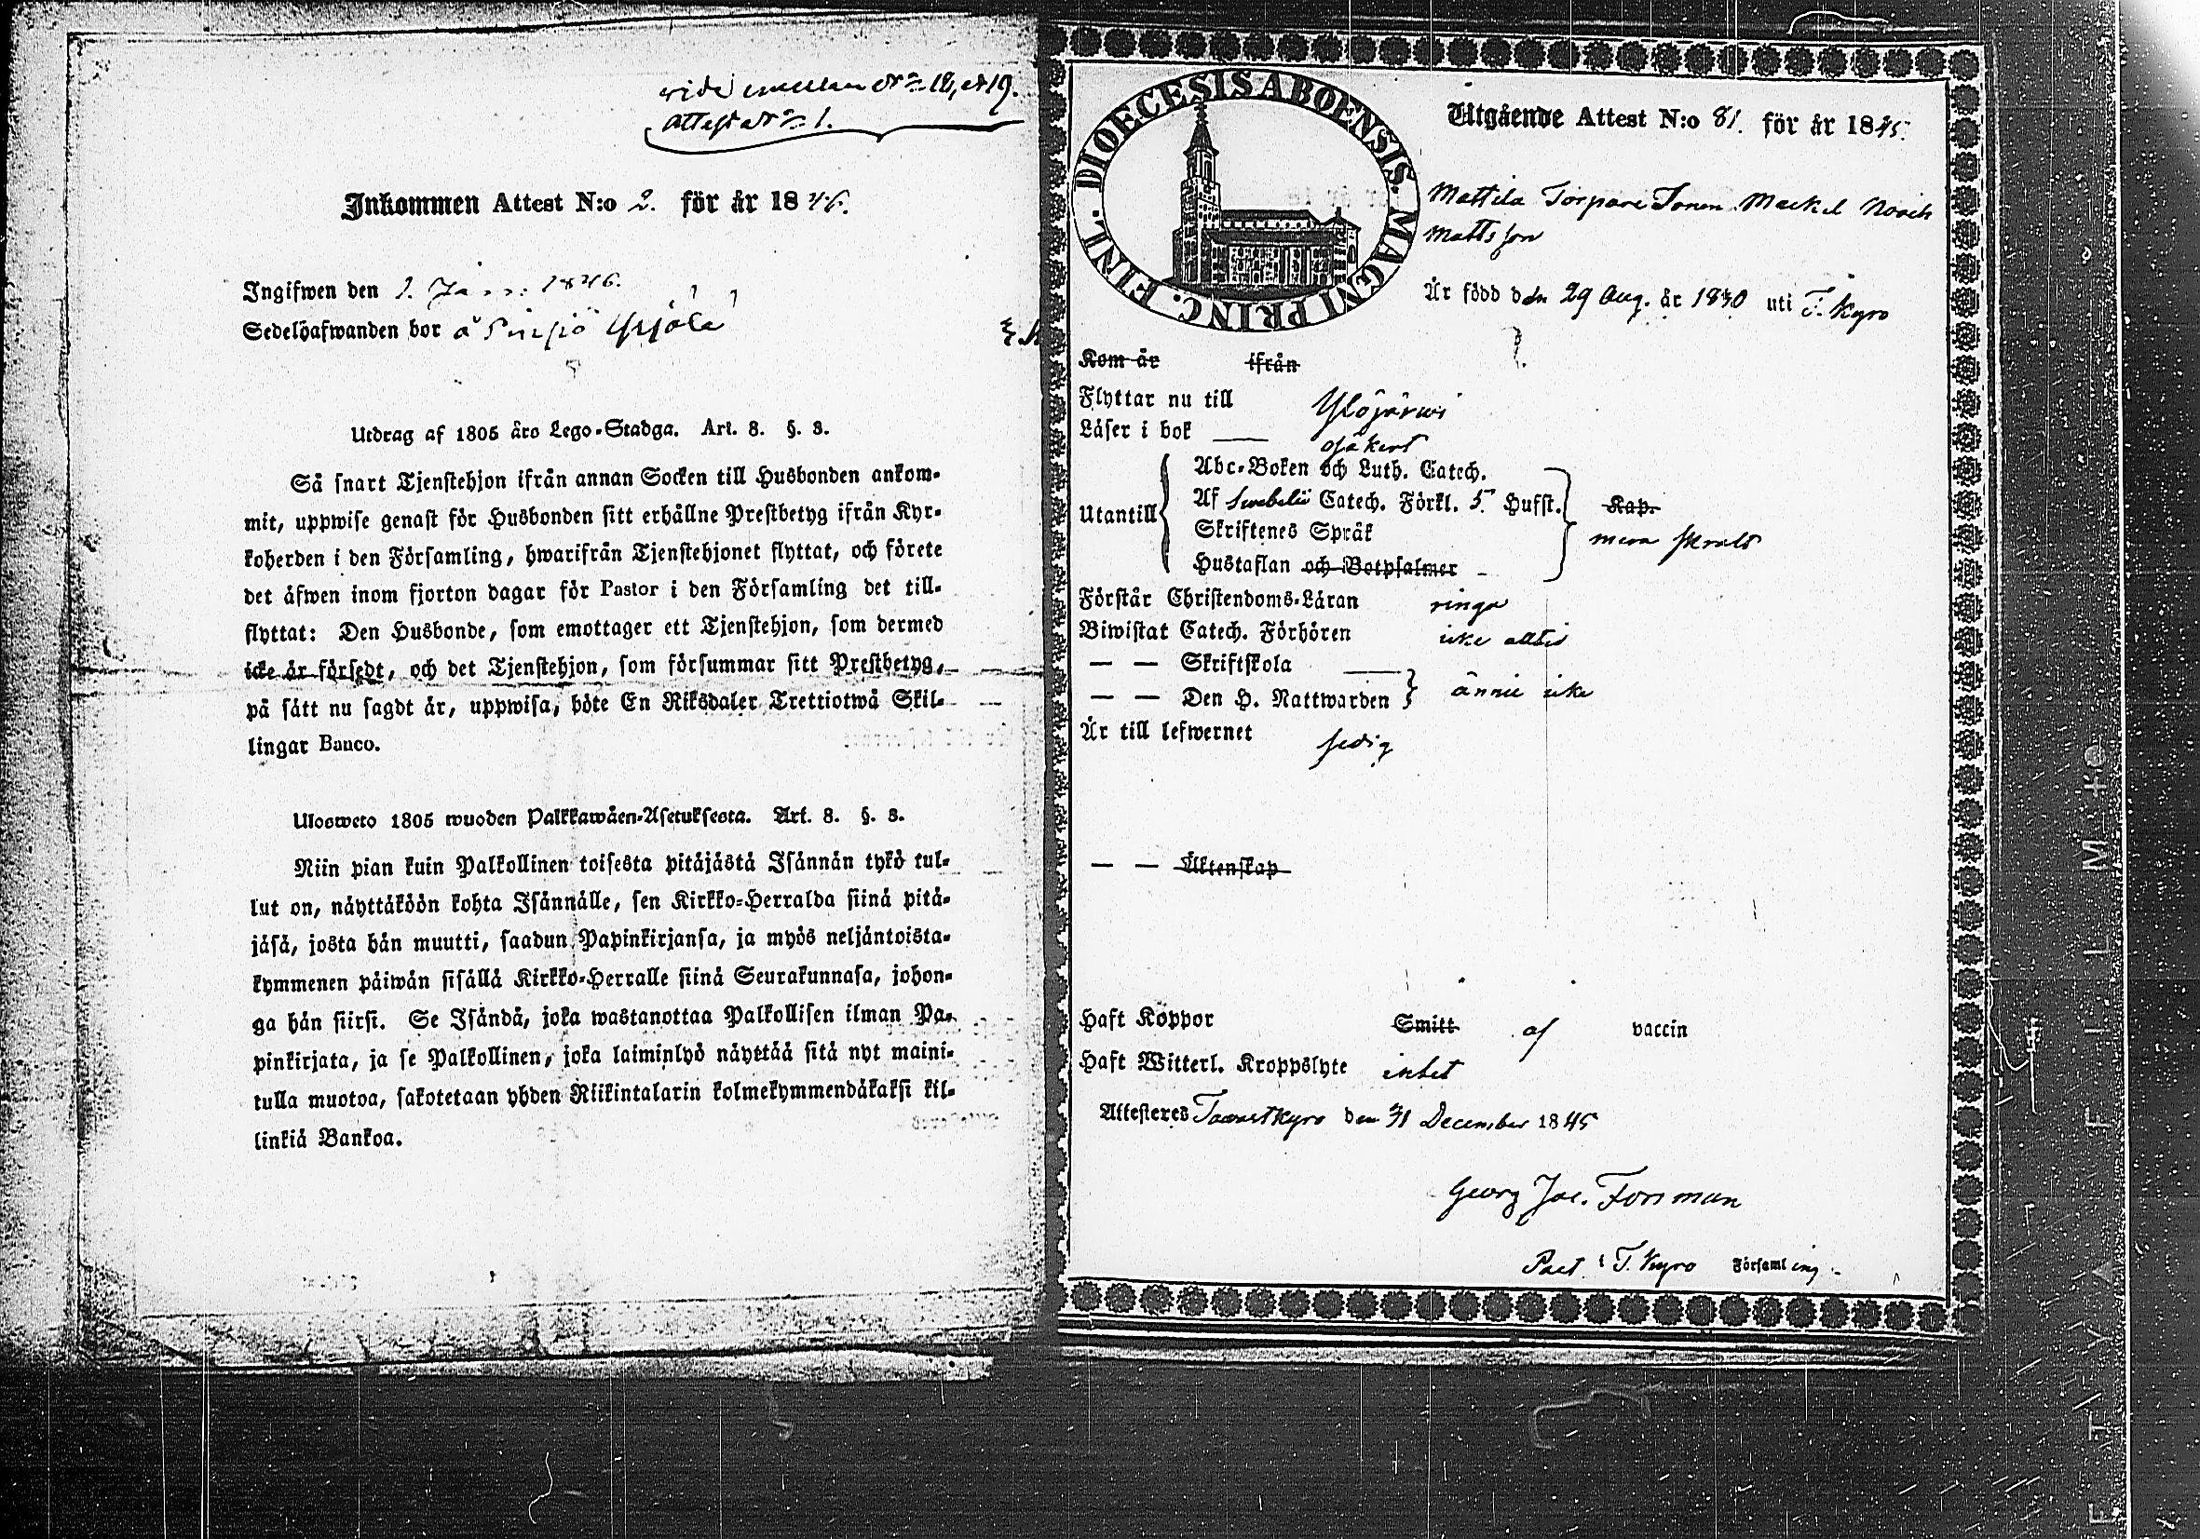 Attest N:o 1.
Inkommen Attest N:o 2. för år 1846.
Ingifwen den 2. Jan: 1846.
Sedelöafwanden bor å
Utdrag af 1805 års Lego-Stadga. Art. 8. §. 3.
Så snart Tjenstehjon ifrån annan Socken till Husbonden ankom-
mit, uppwise genast för Husbonden sitt erhållne Prestbetyg ifrån Kyr-
koherden i den Församling, hwarifrån Tjenstehjonet flyttat, och förete
det äfwen inom fjorton dagar för Pastor i den Församling det till-
flyttat: Den Husbonde, som emottager ett Tjenstehjon, som dermed
icke är försedt, och det Tjenstehjon, som försummar sitt Prestbetyg,
på sätt nu sagdt är, uppwisa, böte En Riksdaler Trettiotwå Skil-
lingar Banco.
Ulosweto 1805 wuoden Palkkawäen-Asetuksesta. Art. 8. §. 3.
Niin pian kuin Palkollinen toisesta pitäjästä Isännän tykö tul-
lut on, näyttäköön kohta Isännälle, sen Kirkko-Herralda siinä pitä-
jäsä, josta hän muutti, saadun Papinkirjansa, ja myös neljäntoista-
kymmenen päiwän sisällä Kirkko-Herralle siinä Seurakunnasa, johon-
ga hän siirsi. Se Isändä, joka wastanottaa Palkollisen ilman Pa-
pinkirjata, ja se Palkollinen, joka laiminlyö näyttää sitä nyt maini-
tulla muotoa, sakotetaan yhden Riikintalarin kolmekymmendäkaksi kil-
linkiä Bankoa.
FINL. DIOECESIS ABOENSIS. MAGNI PRINC.
Utgående Attest N:o 81. för år 1845.
Mattila Torpare Sonen Maekel Noach
Mattsson
Är född den 29 Aug. år 1830 uti T. Kyro
Kom år ifrån
Flyttar nu till Ylöjärwi
Läser i bok osäkert
Utantill
Abc-Boken och Luth. Catech.
Af Swebelii Catech. Förkl. 5. Hufst. Kap.
Skriftenes Språk
Hustaflan och Botpsalmer
mera svalt
Förstår Christendoms-Läran ringa
Biwistat Catech. Förhören icke alltid
— — Skriftskola
— — Den H. Nattwarden ännu icke
Är till lefwernet sedig
— — Äktenskap
Haft Koppor Smitt af vaccin
Haft Witterl. Kroppslyte intet
Attesteres Tawastkyro den 31 December 1845
Georg Jac. Forsman
Past. i T. Kyro Församling.